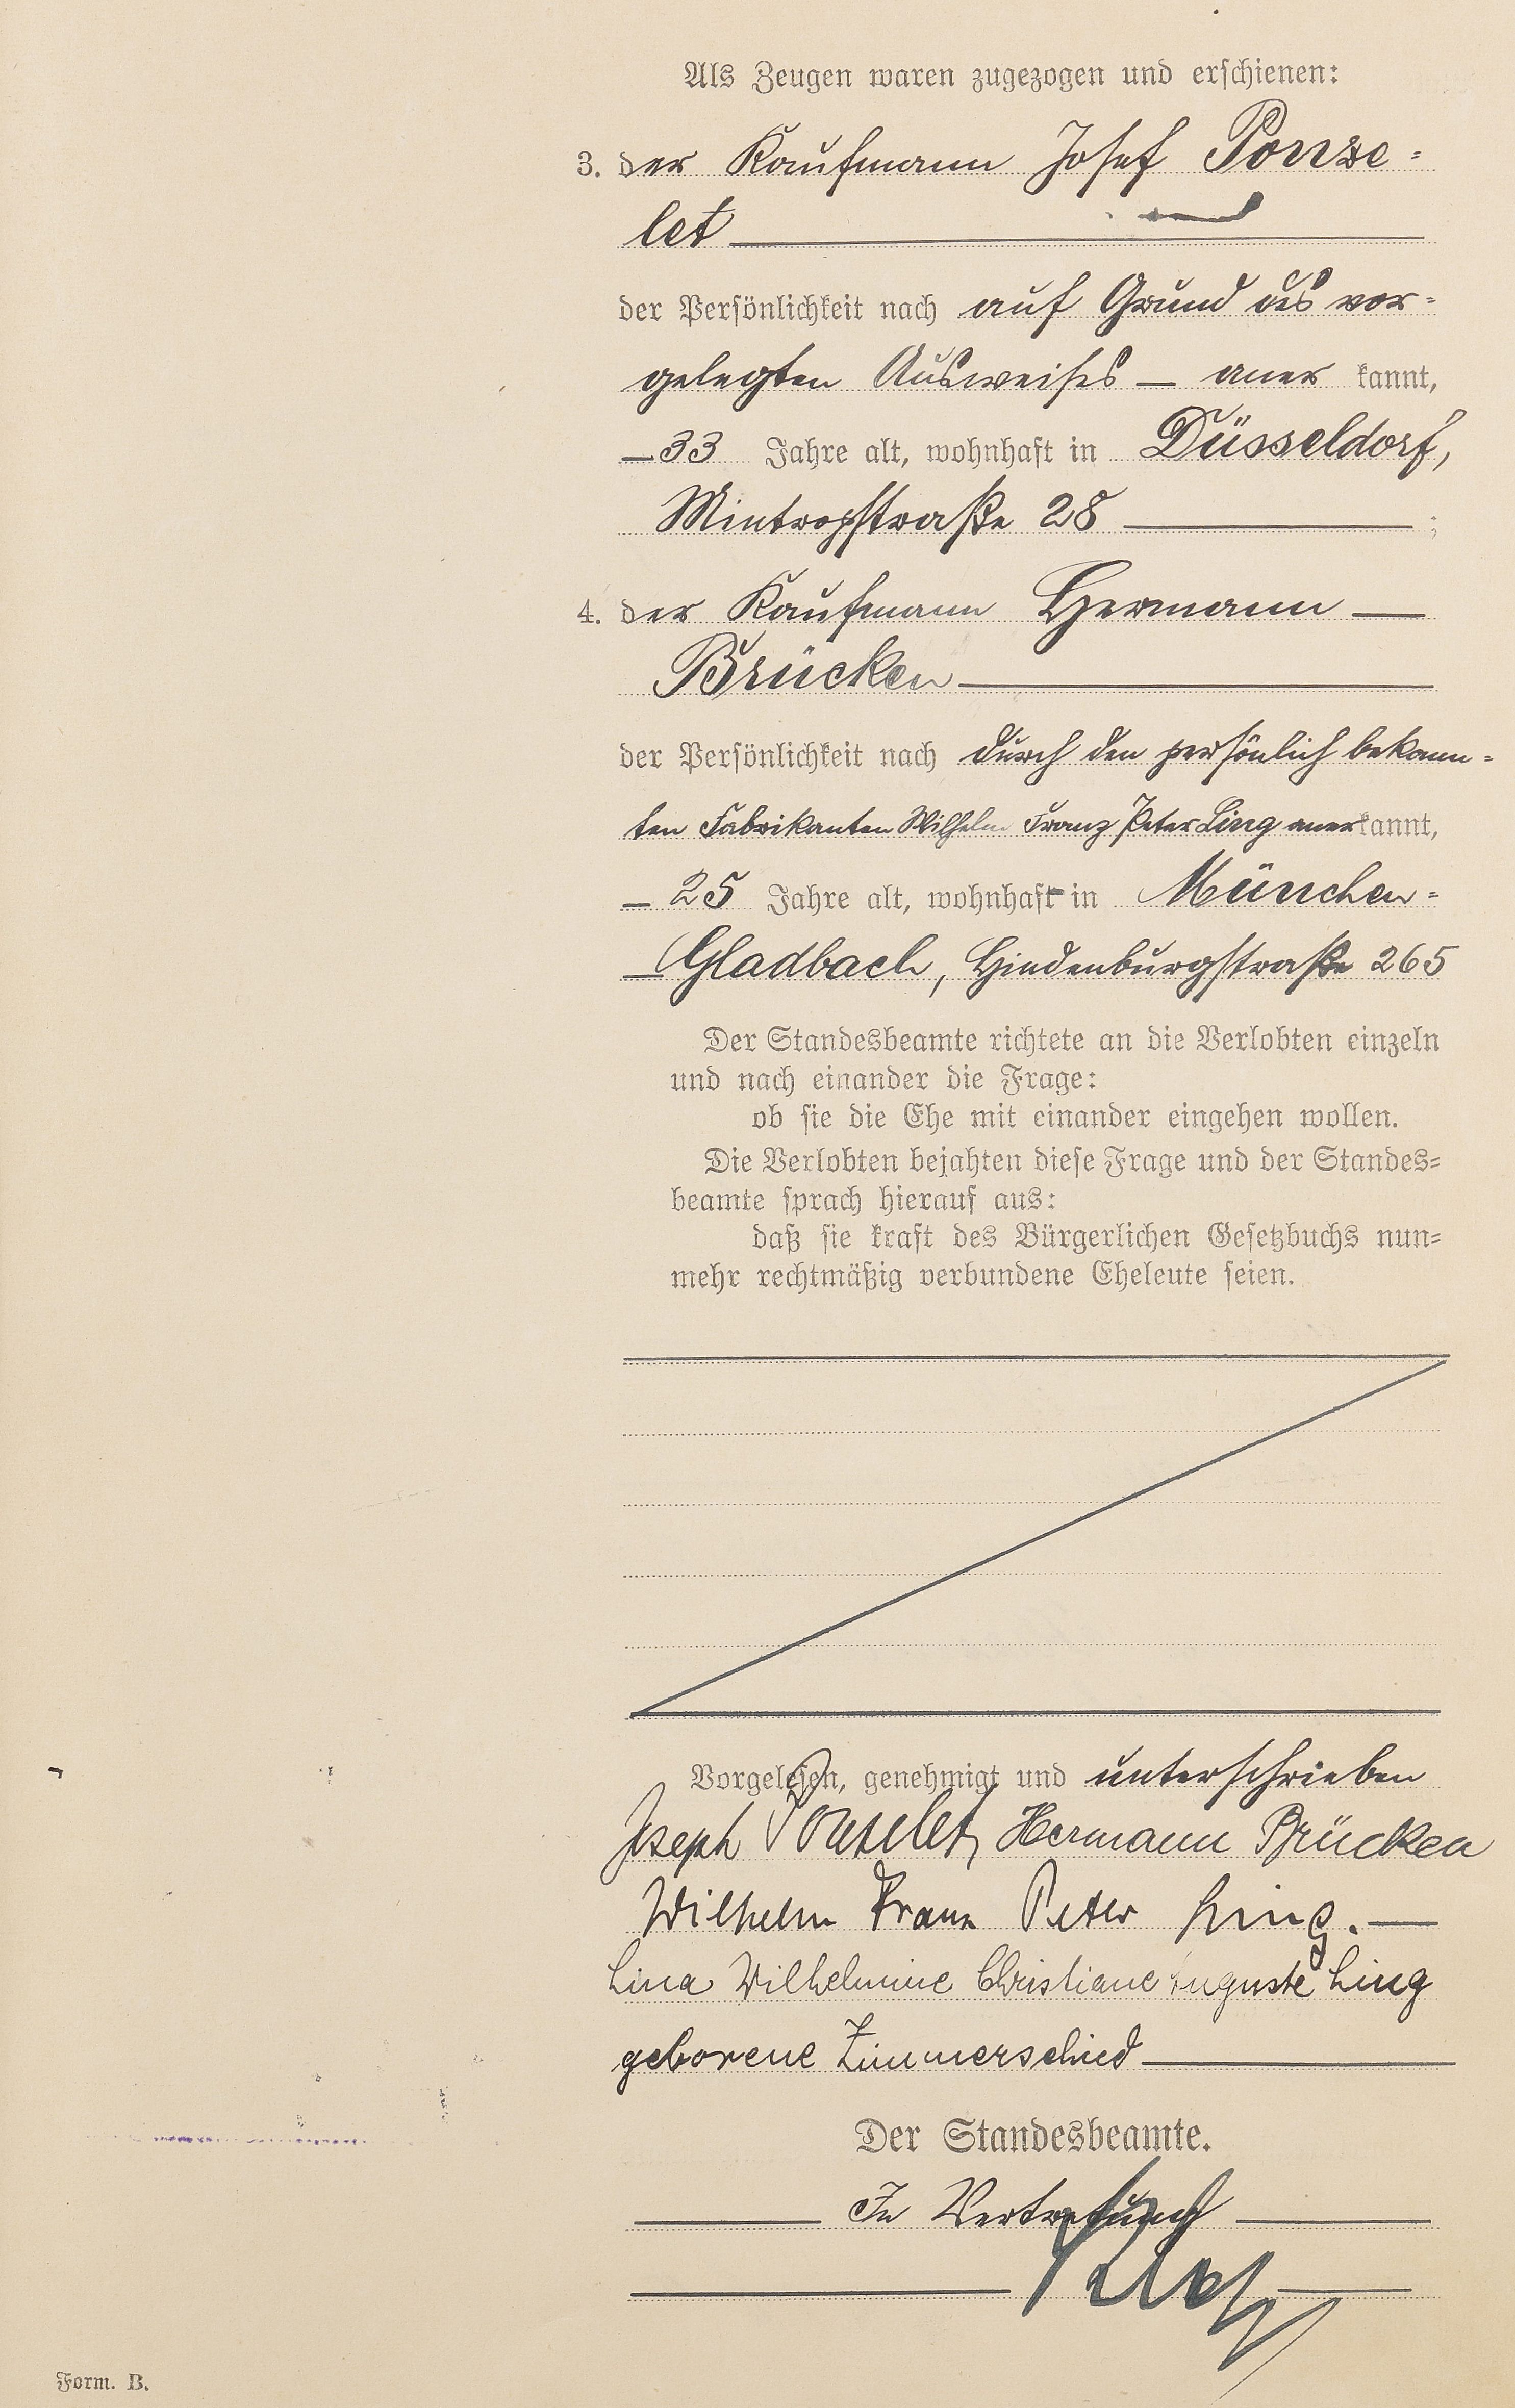 Als Zeugen waren zugezogen und erschienen:
3. der Kaufmann Josef Ponze-
let
der Persönlichkeit nach auf Grund des vor-
gelegten Ausweises – aner kannt,
– 33 Jahre alt, wohnhaft in Düsseldorf,
Mintropstraße 28 ;
4. der Kaufmann Hermann –
Brücken
der Persönlichkeit nach durch den persönlich bekann-
ten Fabrikanten Wilhelm Franz Peter Ling anerkannt,
– 25 Jahre alt, wohnhaft in München-
– Gladbach, Hindenburgstraße 265
Der Standesbeamte richtete an die Verlobten einzeln
und nach einander die Frage:
ob sie die Ehe mit einander eingehen wollen.
Die Verlobten bejahten diese Frage und der Standes-
beamte sprach hierauf aus:
daß sie kraft des Bürgerlichen Gesetzbuchs nun-
mehr rechtmäßig verbundene Eheleute seien.
Vorgelesen, genehmigt und unterschrieben
Joseph Ponzelet, Hermann Brücken
Wilhelm Franz Peter Ling. –
Lina Wilhelmine Christiane Auguste Ling
geborene Zimmerschied
Der Standesbeamte.
In Vertretung
Form. B.